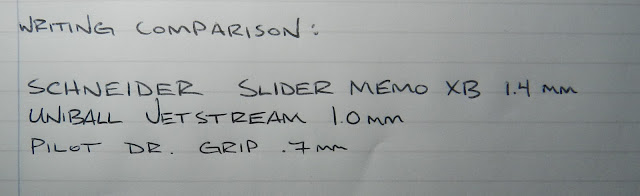 WRITING COMPARISON:
SCHNEIDER SLIDER MEMO XB 1.4 mm
UNIBALL JETSTREAM 1.0 mm
PILOT DR. GRIP .7 mm